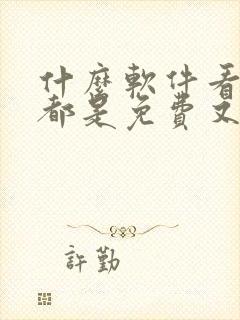 什麼軟件看
都是免費又
許勤